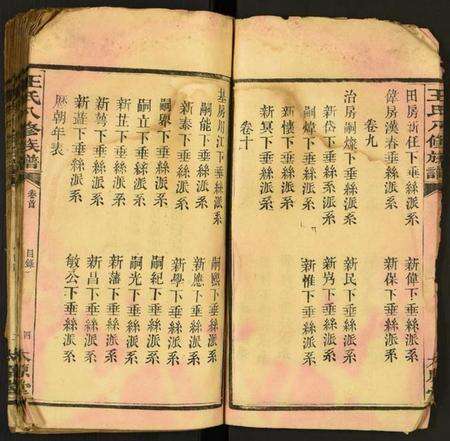 王氏八修族譜
田房新任下垂絲派系 新偉下垂絲派系
偉房漢春下垂絲派系 新保下垂絲派系
卷九
治房嗣燦下垂絲派系 新民下垂絲派系
新岱下垂絲派系 新為下垂絲派系
嗣煒下垂絲派系 新惟下垂絲派系
新懷下垂絲派系
新冥下垂絲派系
卷十
基房順江下垂絲派系 嗣熙下垂絲派系
嗣能下垂絲派系 新應下垂絲派系
新泰下垂絲派系 新學下垂絲派系
嗣界下垂絲派系 嗣紀下垂絲派系
嗣立下垂絲派系 嗣光下垂絲派系
新芷下垂絲派系 新藩下垂絲派系
新勢下垂絲派系 新昌下垂絲派系
新蓋下垂絲派系 敏公下垂絲派系
歷朝年表
王氏八修族譜 卷首 目錄 四